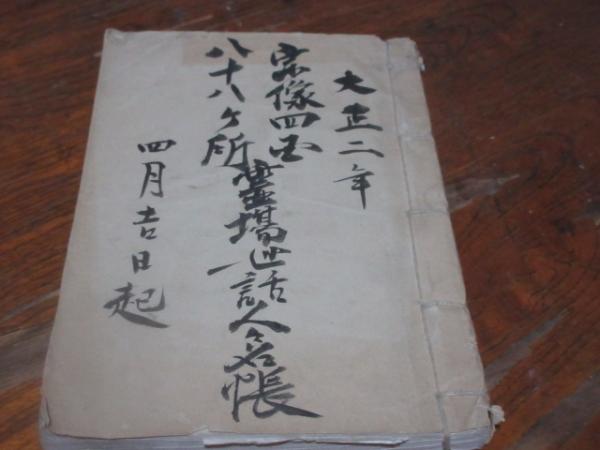 大正二年
宗像四国
八十八ヶ所
霊場世話人名帳
四月吉日起